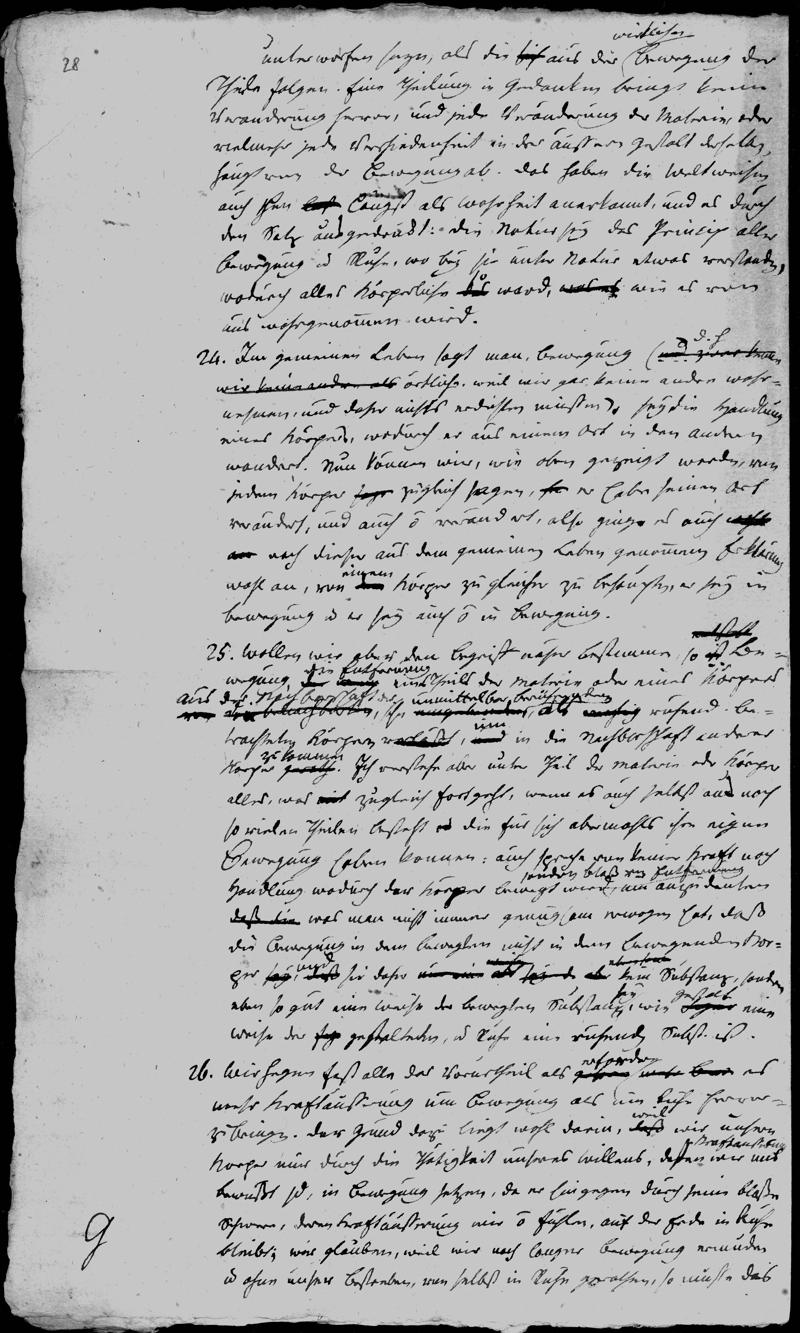 28
wirklichen
unterworfen seyn, als die aus der Bewegung der
Theile folgen. Eine Theilung in Gedanken bringt keine
Veränderung hervor, und jede Veränderung der Materie, oder
vielmehr jede Verschiedenheit in der äussern Gestalt derselben,
hängt von der Bewegung ab. Das haben die Weltweisen
auch schon längst als Wahrheit anerkannt, und es durch
den Satz ausgedrukt: die Natur sey das Princip aller
Bewegung u Ruhe, wo bey sie unter Natur etwas verstanden,
wodurch alles Körperliche das ward, wie es von
uns wahrgenommen wird.
24. Im gemeinen Leben sagt man, Bewegung (d. h.
örtliche, weil wir gar keine andere wahr=
nehmen, und daher nichts erdichten müssen), sey die Handlung
eines Körpers, wodurch er aus einem Ort in den andern
wandert. Nun können wir, wie oben gezeigt worden, von
jedem Körper zugleich sagen, er habe seinen Ort
verändert, und auch ō verändert, also ginge es auch
nach dieser aus dem gemeinen Leben genommen Erklärung
wohl an, von einem Körper zu gleicher zu behaupten, er sey in
Bewegung u er sey auch ō in Bewegung.
25. Wollen wir aber den Begriff näher bestimmen, so ist Be=
wegung die Entfernung eines Theils der Materie oder eines Körpers
aus der Nachbarschaft der ihn unmittelbar berührenden, als ruhend be=
trachteten Körper, um in die Nachbarschaft anderer
Körper zu kommen. Ich verstehe aber unter Theil der Materie oder Körper
alles, was zugleich fortgeht, wenn es auch selbst aus noch
so vielen Theilen besteht die für sich abermahls ihre eigne
Bewegung haben können: auch spreche von keiner Kraft noch
sondern bloß von Entfernung
Handlung wodurch der Körper bewegt wird, um anzudeuten
was man nicht immer genugsam erwogen hat, daß
die Bewegung in dem bewegten nicht in dem bewegenden Kör=
per und sie daher keine Substanz, sondern
eben so gut eine Weise der bewegten Substanz sey, wie Gestalt eine
Weise der gestalteten, u Ruhe eine ruhende Subst. ist.
26. Wir hegen fast alle das Vorurtheil als erfordere es
mehr Kraftäusserung um Bewegung als um Ruhe hervor=
zubringen. Der Grund dazu liegt wohl darin, weil wir unsern
Körper nur durch die Thätigkeit unseres Willens, deren Kraftäusserung wir uns
bewußt sd, in Bewegung setzen, da er hingegen durch seine bloße
Schwere, deren Kraftäusserung wir ō fühlen, auf der Erde in Ruhe
bleibt; wir glauben, weil wir nach langer Bewegung ermüden
u ohne unser Bestreben, von selbst in Ruhe gerathen, so müste das
g